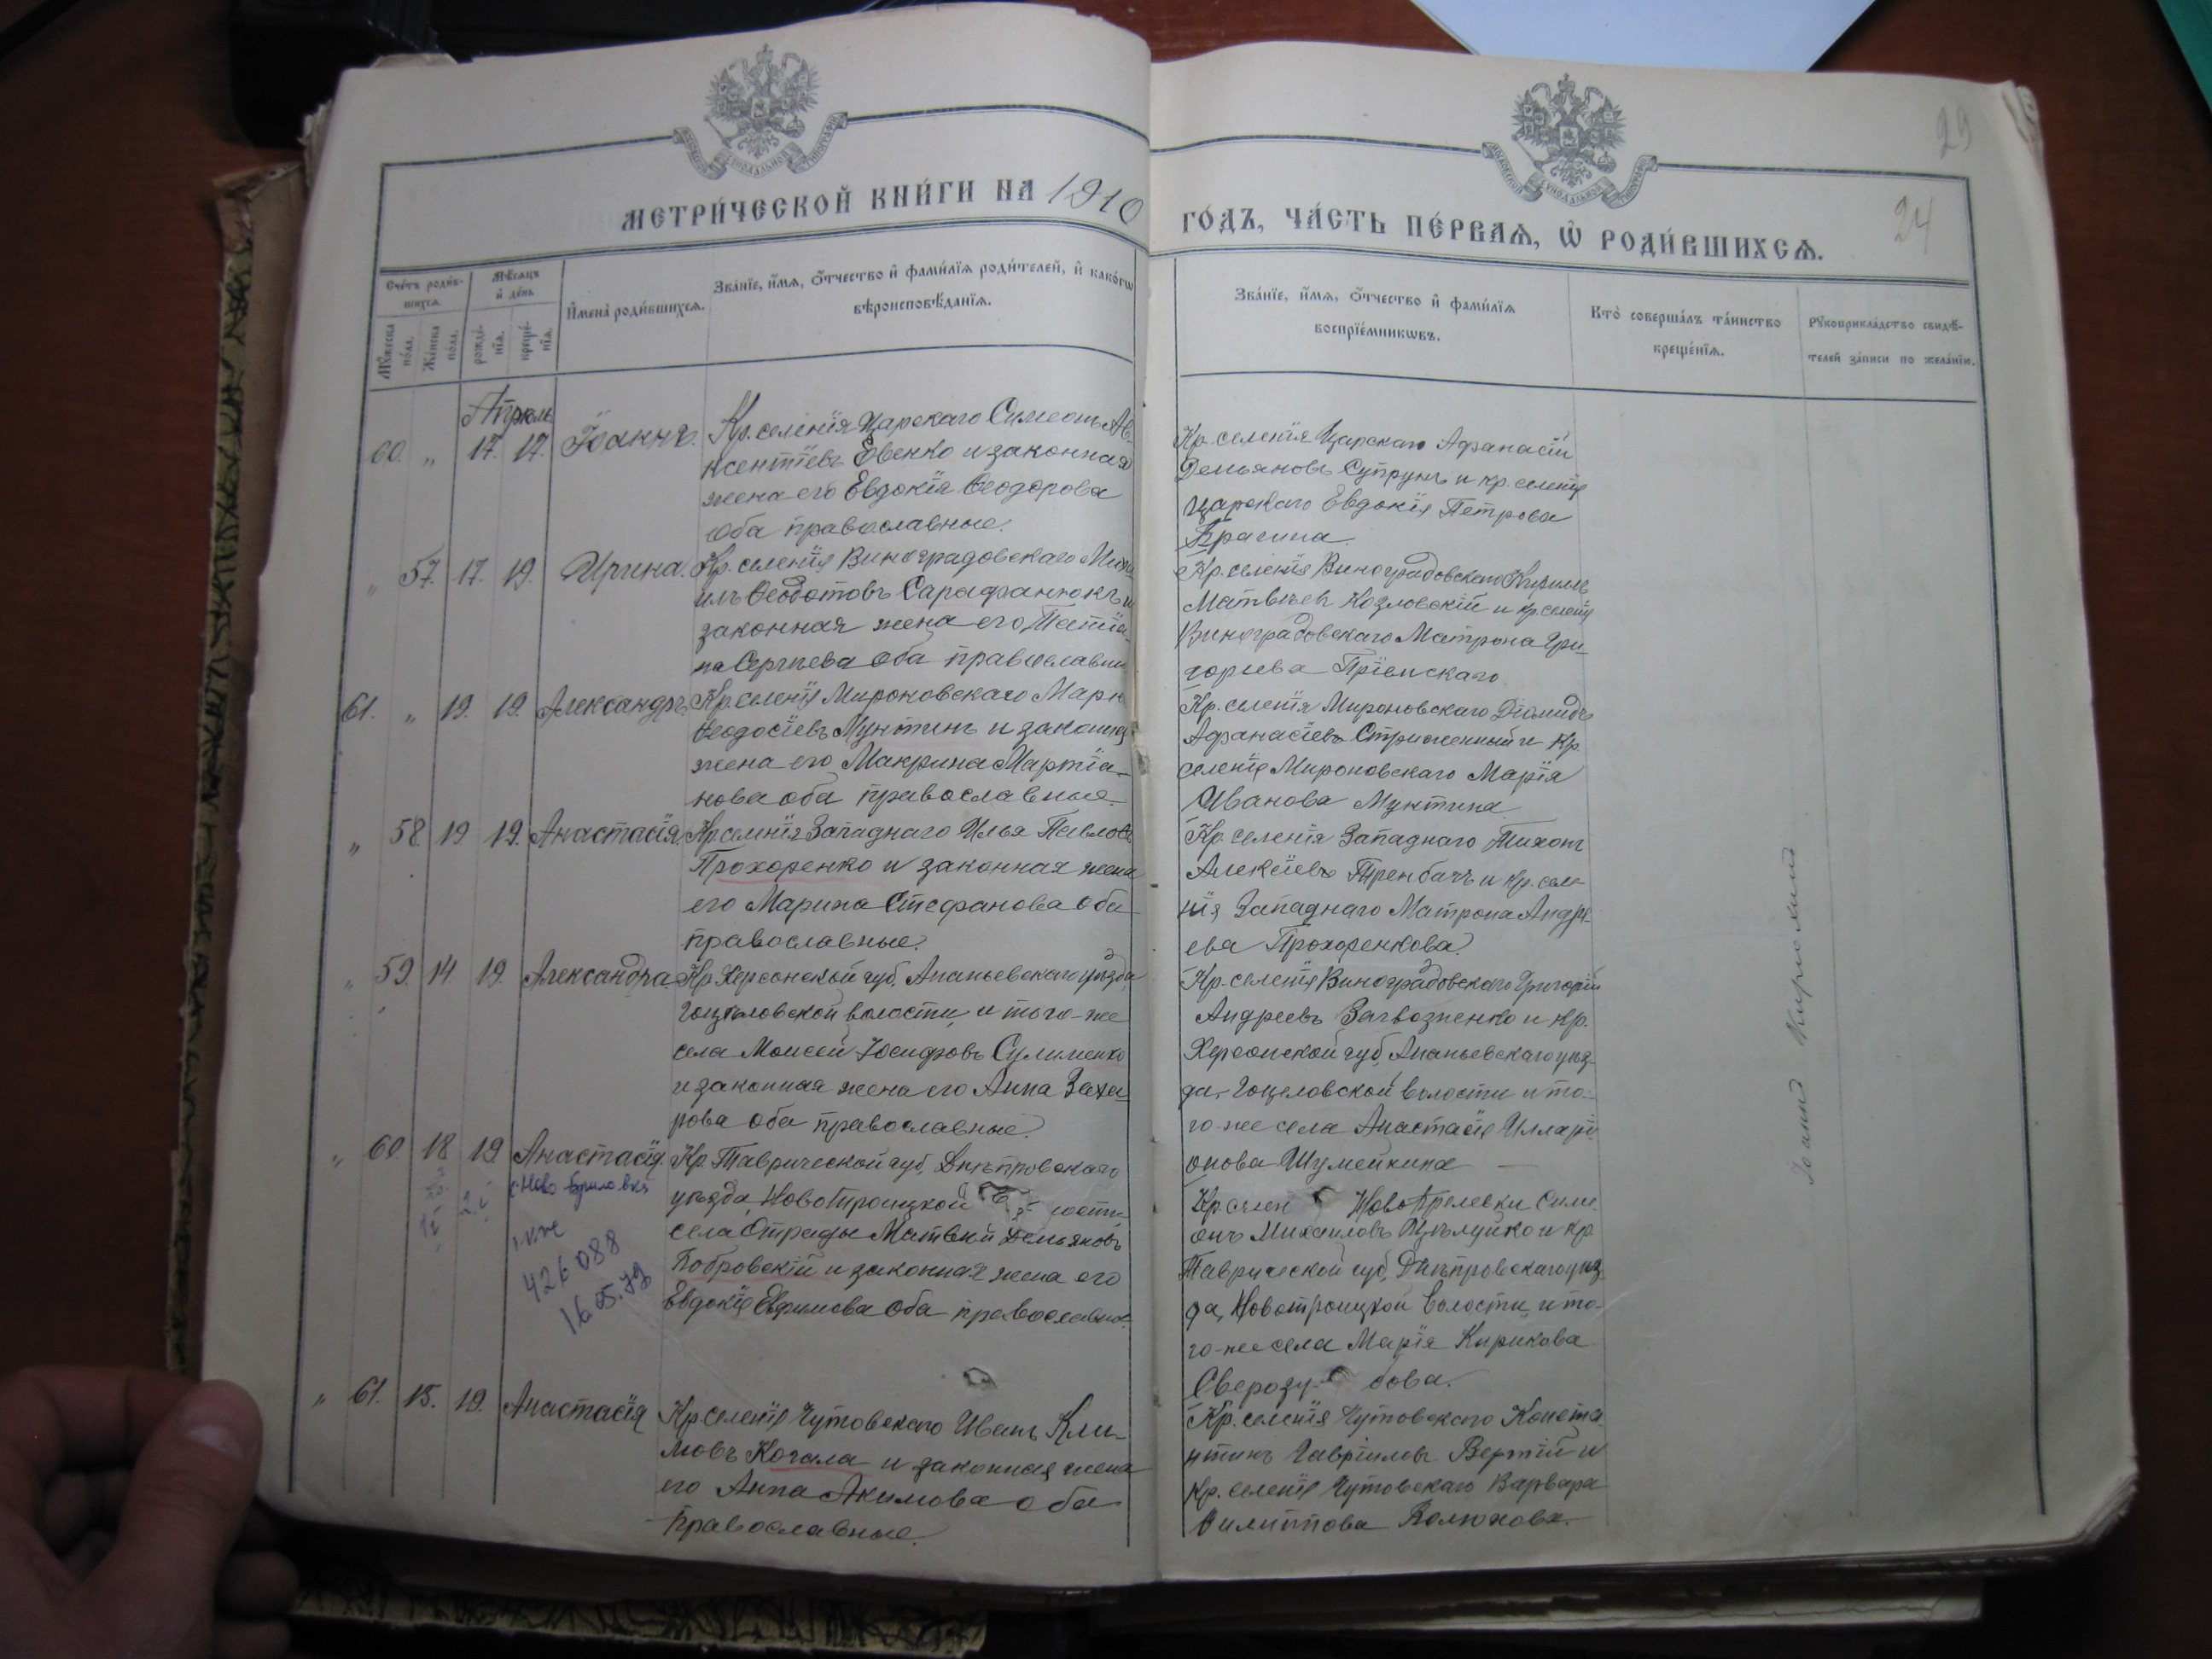 МЕТРИ́ЧЕСКОЙ КНИ́ГИ НА 1910
ГО́ДЪ, ЧА́СТЬ ПЕ́РВАѦ, Ѡ РОДИ́ВШИХСѦ.
29
24
Сче́тъ роди́в-
шихсѧ.
Мѣ́сѧцъ
и҆ де́нь
Мꙋ́жеска
по́ла.
Же́нска
по́ла.
рожде́-
нїѧ.
креще́-
нїѧ.
И҆мена̀ роди́вшихсѧ.
Зва́нїе, и҆́мѧ, ѻ҆́тчество и҆ фами́лїѧ роди́телей, и҆ како́гѡ
вѣроисповѣ́данїѧ.
Зва́нїе, и҆́мѧ, ѻ҆́тчество и҆ фами́лїѧ
воспрїе́мникѡвъ.
Кто̀ соверша́лъ та́инство
креще́нїѧ.
Рꙋкоприкла́дство свидѣ́-
телей за́писи по жела́нїю.
Апрель
60. „ 17. 17. Іоаннъ.
Кр. селенія Царскаго Симеонъ Ав-
ксентіевъ Евенко и законная
жена его Евдокія Ѳеодорова
оба православные.
Кр. селенія Царскаго Афанасій
Демьяновъ Супрунъ и кр. селенія
Царскаго Евдокія Петрова
Брагина.
„ 57. 17. 19. Ирина.
Кр. селенія Виноградовскаго Миха
илъ Ѳеодотовъ Сарафанюкъ и
законная жена его Татіа-
на Сергиева оба православны
Кр. селенія Виноградовскаго Кириллъ
Матвѣевъ Козловскій и кр. селенія
Виноградовскаго Матрона Гри-
горьева
61. „ 19. 19. Александръ.
Кр. селенія Мироновскаго Марк
Ѳеодосіевъ Мунтинъ и законная
жена его Макрина Мартіа-
нова оба православные.
Кр. селенія Мироновскаго Діомидъ
Афанасіевъ Стриженный и кр.
селенія Мироновскаго Марія
Иванова Мунтина
„ 58. 19 19. Анастасія.
Кр. селенія Западнаго Илья Павловъ
Прохоренко и законная жена
его Марина Стефанова оба
православные.
Кр. селенія Западнаго Тихонъ
Алексіевъ Тренбачъ и кр. селе-
нія Западнаго Матрона Андре-
ева Прохоренкова.
„ 59. 14. 19. Александра.
Кр. Херсонской губ, Ананьевскаго уѣзда
Гоцуловской волости, и того-же
села Моисей Іосифовъ Сулименко
и законная жена его Анна Заха-
рова оба православные.
Кр. селенія Виноградовскаго Григорій
Андреевъ Загвозненко и кр.
Херсонской губ, Ананьевскаго уѣз-
да, Гоцеловской волости и то-
го-же села Анастасія Илларі-
онова Шумейкина —
„ 60 18 19 Анастасія.
с. Ново
426088
16.05.79
Кр. Таврической губ, Днѣпровскаго
уѣзда, Новотроицкой
села Отрады Матвей Демьяновъ
Бобровскій и законная жена его
Евдокія Евфимова оба православные.
Кр. селен Симе-
онъ Михаиловъ и кр.
Таврической губ, Днѣпровскаго уѣз-
да, Новотроицкой волости, и то-
го-же села Марія Кирикова
„ 61. 15. 19. Анастасія
Кр. селенія Чутовскаго Иванъ Кли-
мовъ Когала и законная жена
его Анна Акимова оба
православные.
Кр. селенія Чутовскаго Конста-
нтинъ Гавріиловъ Вертій и
кр. селенія Чутовскаго Варвара
Филиппова Волюхова.